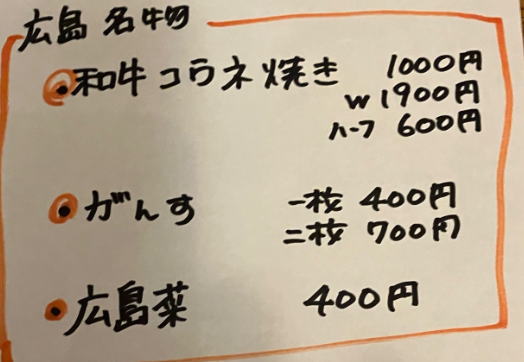 広島名物
和牛コウネ焼き 1000円
W 1900円
ハーフ 600円
がんす 一枚 400円
二枚 700円
広島菜 400円